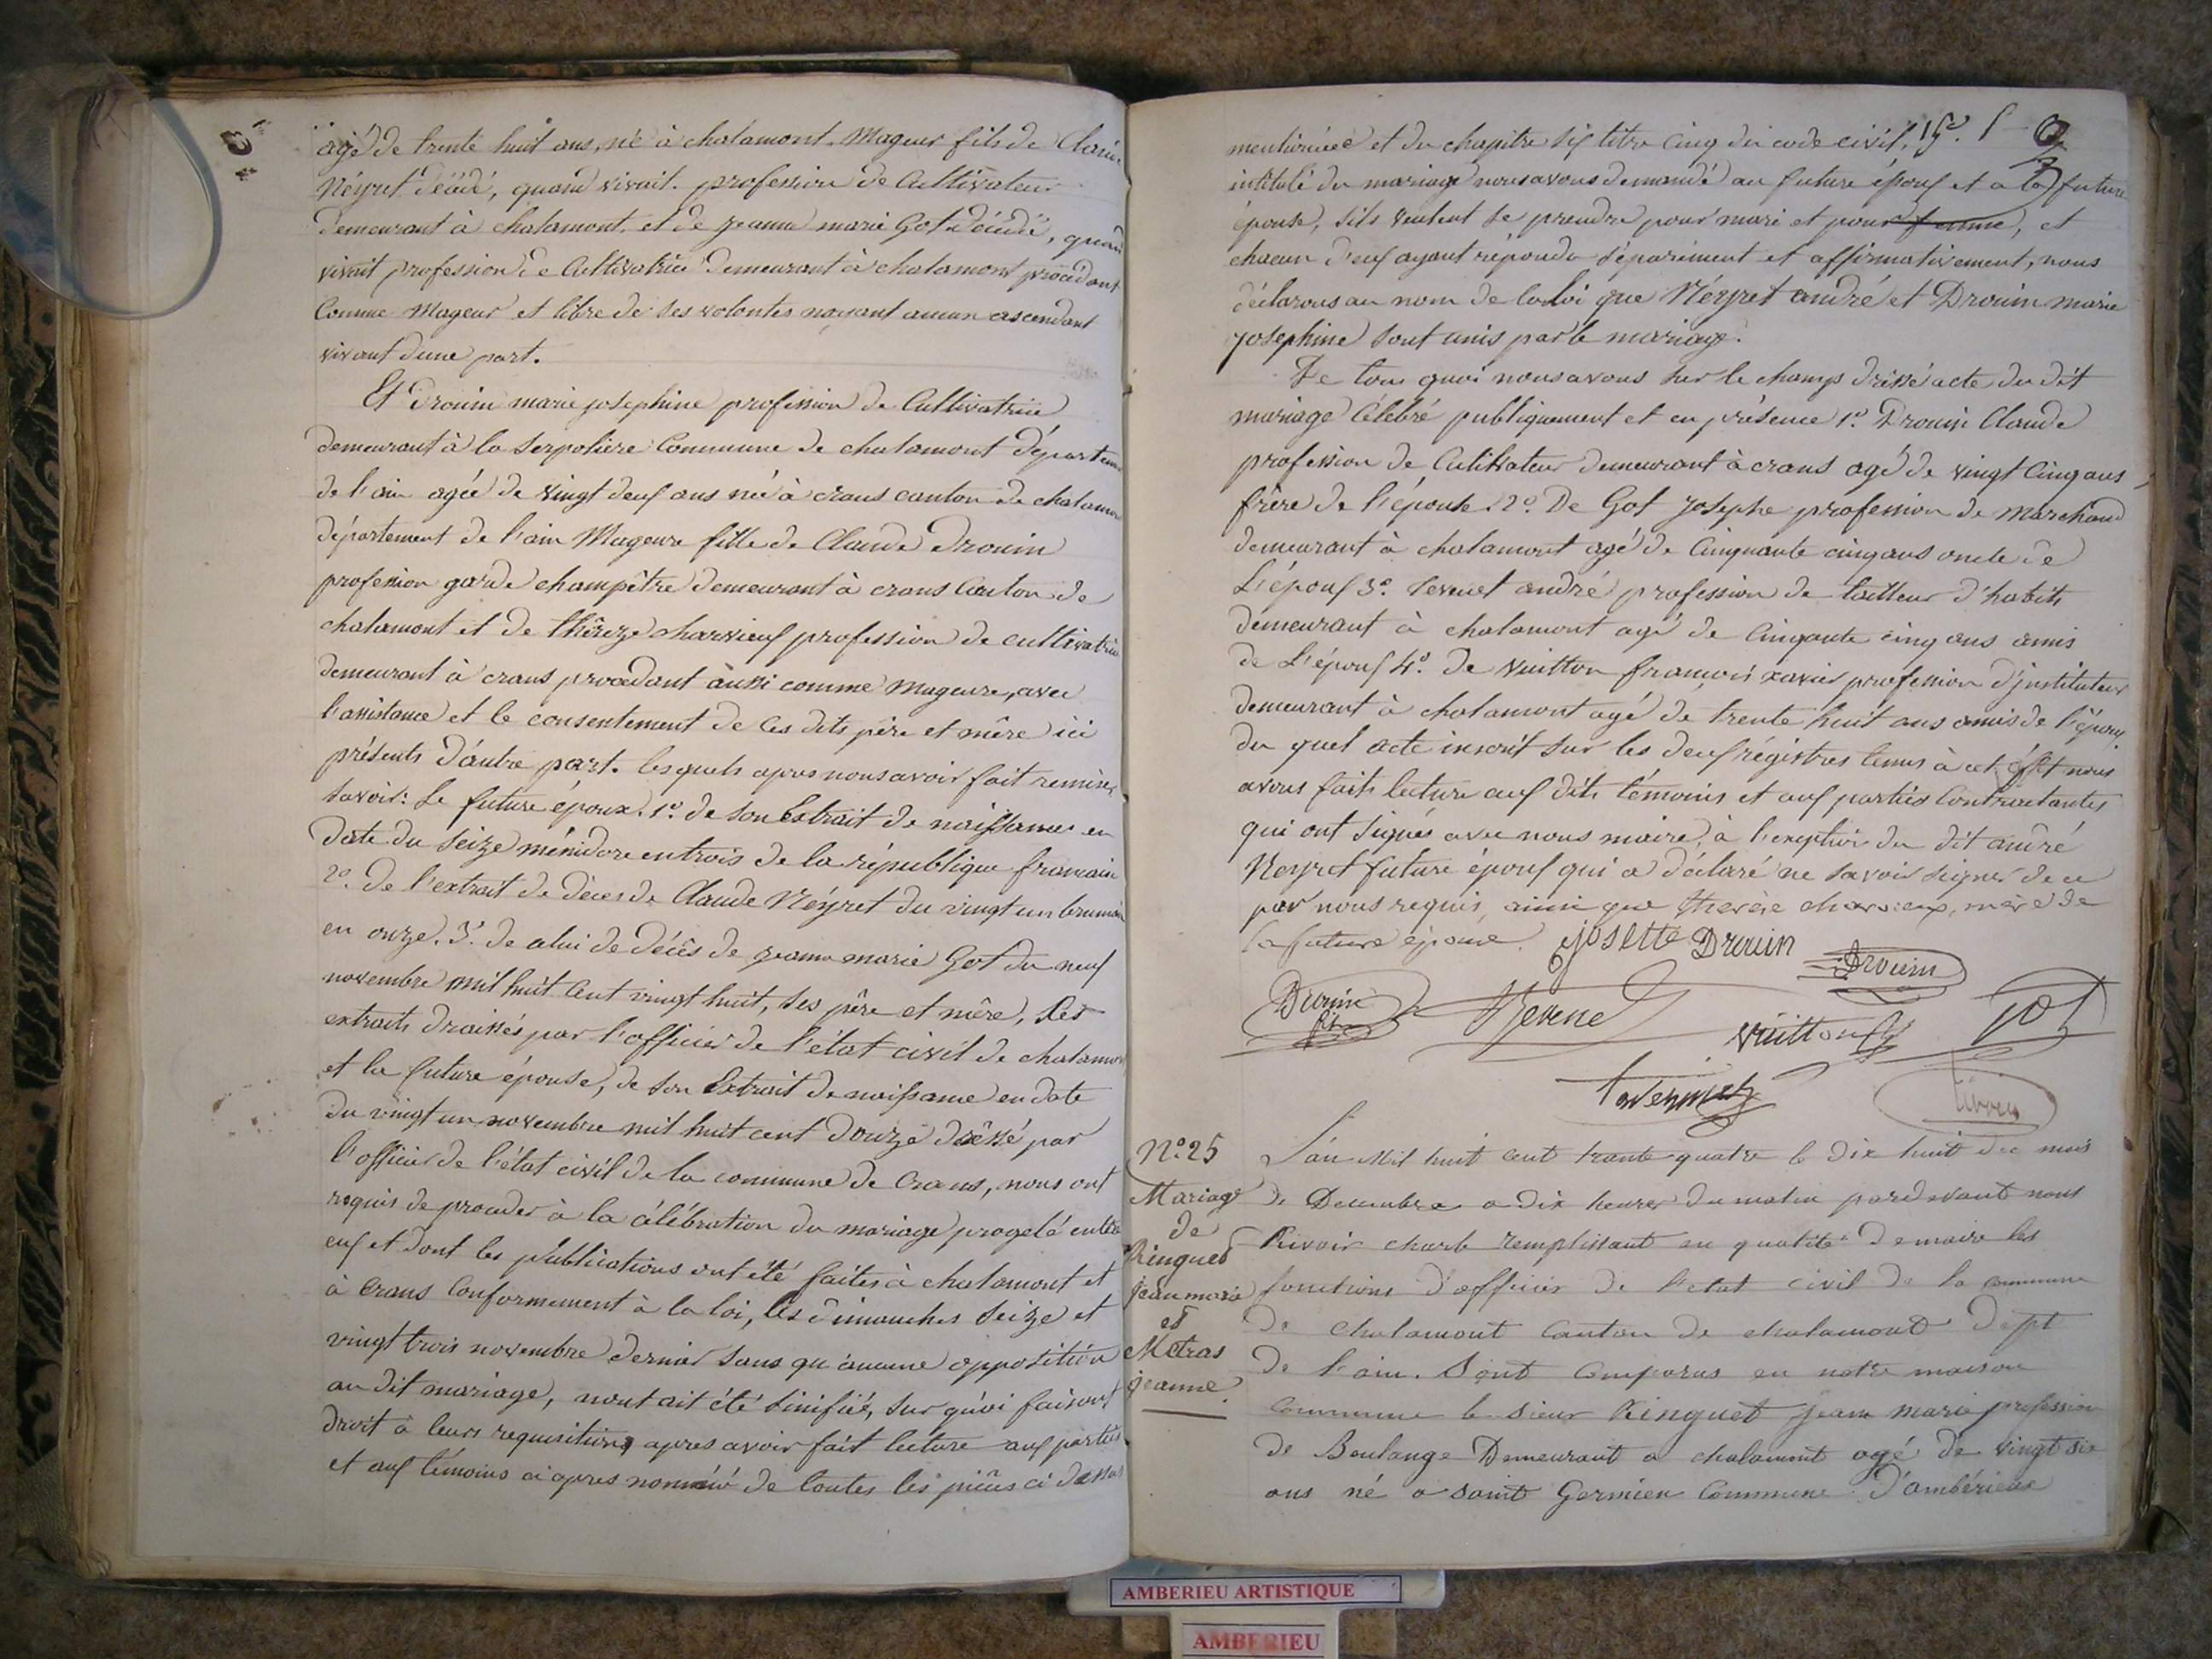 agé de trente huit ans, né à chalamont. Mageur fils de Claude
Néyret décédé, quand vivait. profession de Cultivateur
demeurant à chalamont. et de jeanne marie Got décédé, quand
vivait profession de Cultivatrice demeurant à chalamont procédant
Comme Mageur et libre de ses volontés nayant aucun ascendant
vivant d'une part.
Et Drouin marie josephine profession de Cultivatrice
demeurant à la Serpolière Commune de chalamont départem
de l'ain agée de vingt deux ans née à crans canton de chalamon
département de l'ain Mageure fille de Claude Drouin
profession garde champêtre demeurant à crans Canton de
chalamont et de thêrèze charvieux profession de cultivatrice
demeurant à crans procédant aussi comme Mageure, avec
l'assistance et le consentement de ces dits père et mêre ici
présents d'autre part. lesquels apres nous avoir fait remise,
savoir: Le future époux. 1º. de son Extrait de naissance en
date du seize ménidore en trois de la république francaise
2º. de l'extrait de décès de Claude Néyret du vingt un brumaire
en onze. 3º. de celui de décès de jeanne marie Got du neuf
novembre mil huit cent vingt huit, ses père et mère, Les
extraits draissés par l'officier de l'état civil de chalamon
et la future épouse, de son Extrait de naissance en date
du vingt un novembre mil huit cent douze dressé par
l'officier de l'état civil de la commune de Crans, nous ont
requis de procéder à la célébration du mariage progeté entre
eux et dont les publications ont été faites à chalamont et
à Crans Conformement à la loi, les dimanches seize et
vingt trois novembre dernier sans qu'aucune opposition
au dit mariage, nout ait été sinifiée, sur quoi faisant
droit à leurs requisitions apres avoir fait lecture aux parties
et aux témoins ci apres nommé de toutes les pièces ci dessus
mentionnées et du chapitre six titre Cinq du code civil,
intitulé du mariage nous avons demandé au future époux et a la future
épouse, s'ils veulent se prendre pour mari et pour femme, et
chacun d'eux ayant répondu séparément et affirmativement, nous
déclarons au nom de la loi que Néyret andré et Drouin marie
josephine sont unis par le mariage.
De tous quoi nous avons sur le champs drissé acte du dit
mariage Célébré publiquement et en présence 1º. Drouin Claude
profession de Cultivateur demeurant à crans agé de vingt Cinq ans
frère de l'épouse. 2º. De Got josephe profession de Marchand
demeurant à chalamont agé de Cinquante cinq ans oncle de
L'époux 3º. andré profession de tailleur d'habits
demeurant à chalamont agé de Cinquante cinq ans amis
de L'époux 4º. de Vuitton francois xavier profession d'instituteur
demeurant à chalamont agé de trente huit ans amis de l'époux.
du quel acte inscrit sur les deux régistres tenus à cet éffet nous
avons faits lecture aux dits témoins et aux parties Contractantes
qui ont signés avec nous maire, à l'exeption du dit andré
Neyret future époux qui a déclaré ne savoir signer de ce
par nous requis, ainsi que thérèse charvieux, mère de
la future épouse. josette Drouin Drouin
Drouin fils Vuitton got
Rivoir
Nº. 25
Mariage
de
Ringuet
jean marie
et
Metras
jeanne.
L'an Mil huit cent trante quatre le dix huit du mois
de Decembre a dix heures du matin pardevant nous
Rivoir charle remplissant en qualité de maire les
fonctions d'officier de l'etat civil de la commune
de chalamont Canton de chalamont dept
de l'ain. Sont Comparus en notre maison
Commune le sieur Ringuet jean marie profession
de Boulange Demeurant a chalamont agé de vingt six
ans né a saint Germien Commune d'ambérieux
AMBERIEU ARTISTIQUE
AMBERIEU